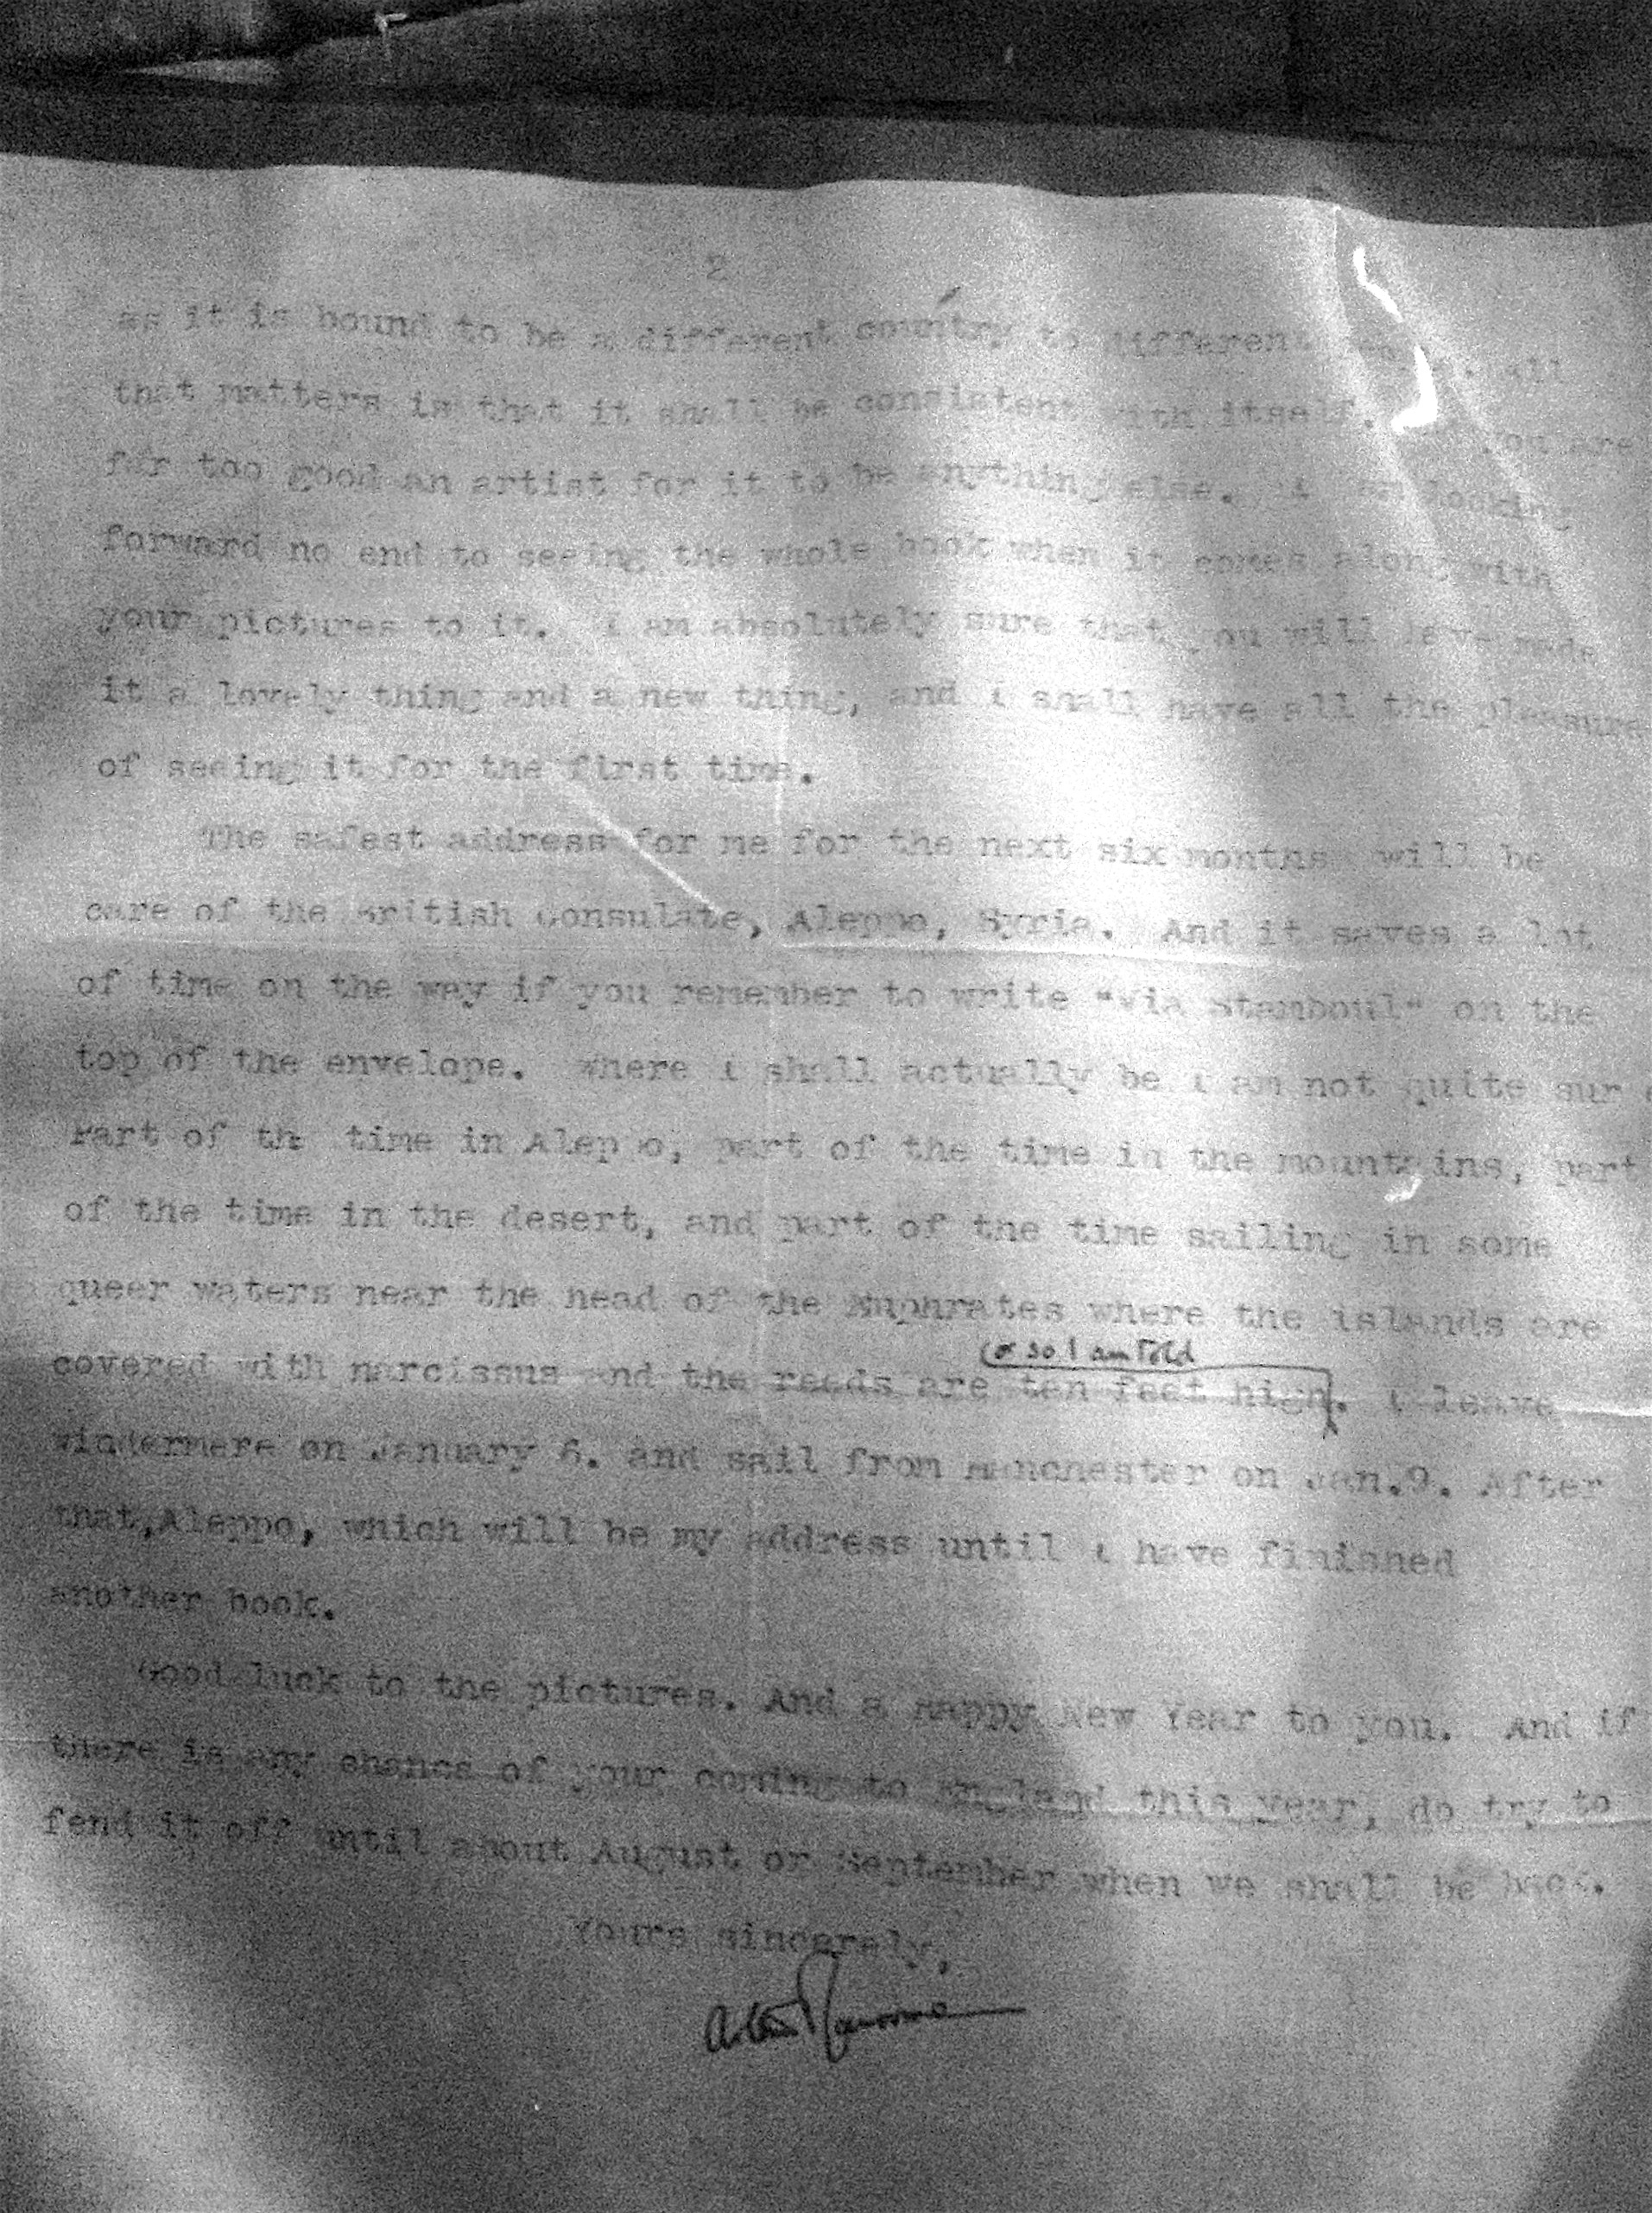 2
as it is bound to be a different country to different . All
that matters is that it shall be consistent with itself. you are
far too good an artist for it to be anything else. I am looking
forward no end to seeing the whole book when it comes along with
your pictures to it. I am absolutely sure that you will have made
it a lovely thing and a new thing, and I shall have all the pleasure
of seeing it for the first time.
The safest address for me for the next six months will be
care of the British Consulate, Aleppo, Syria. And it saves a lot
of time on the way if you remember to write "via Stamboul" on the
top of the envelope. Where I shall actually be I am not quite sur
Part of the time in Aleppo, part of the time in the mountains, part
of the time in the desert, and part of the time sailing in some
queer waters near the head of the Euphrates where the islands are
(or so I am told
covered with narcissus and the reeds are ten feet high. I leave
Windermere on January 6. and sail from Manchester on Jan.9. After
that,Aleppo, which will be my address until I have finished
another book.
Good luck to the pictures. And a Happy New Year to you. And if
there is any chance of your coming to England this year, do try to
fend it off until about August or September when we shall be back.
Yours sincerely,
Arthur Ransome